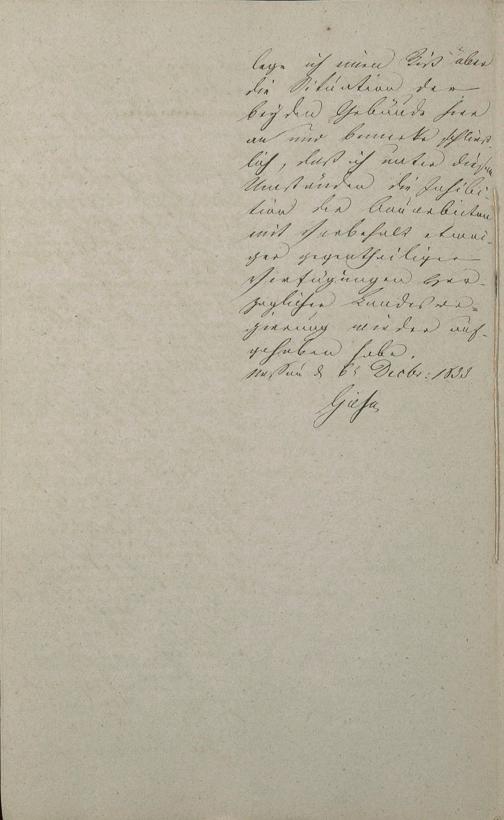 lege ich einen Riß über
die Situation der
beyden Gebäude hier
an und bemerke schließ
lich, daß ich unter diesen
Umständen die Inhibi-
tion der Bauarbeiten
mit Vorbehalt etwai-
ger gegentheiliger
Verfügungen Her-
zoglicher Landesre-
gierung wieder auf-
gehoben habe.
Nassau d 6t Decbr: 1833